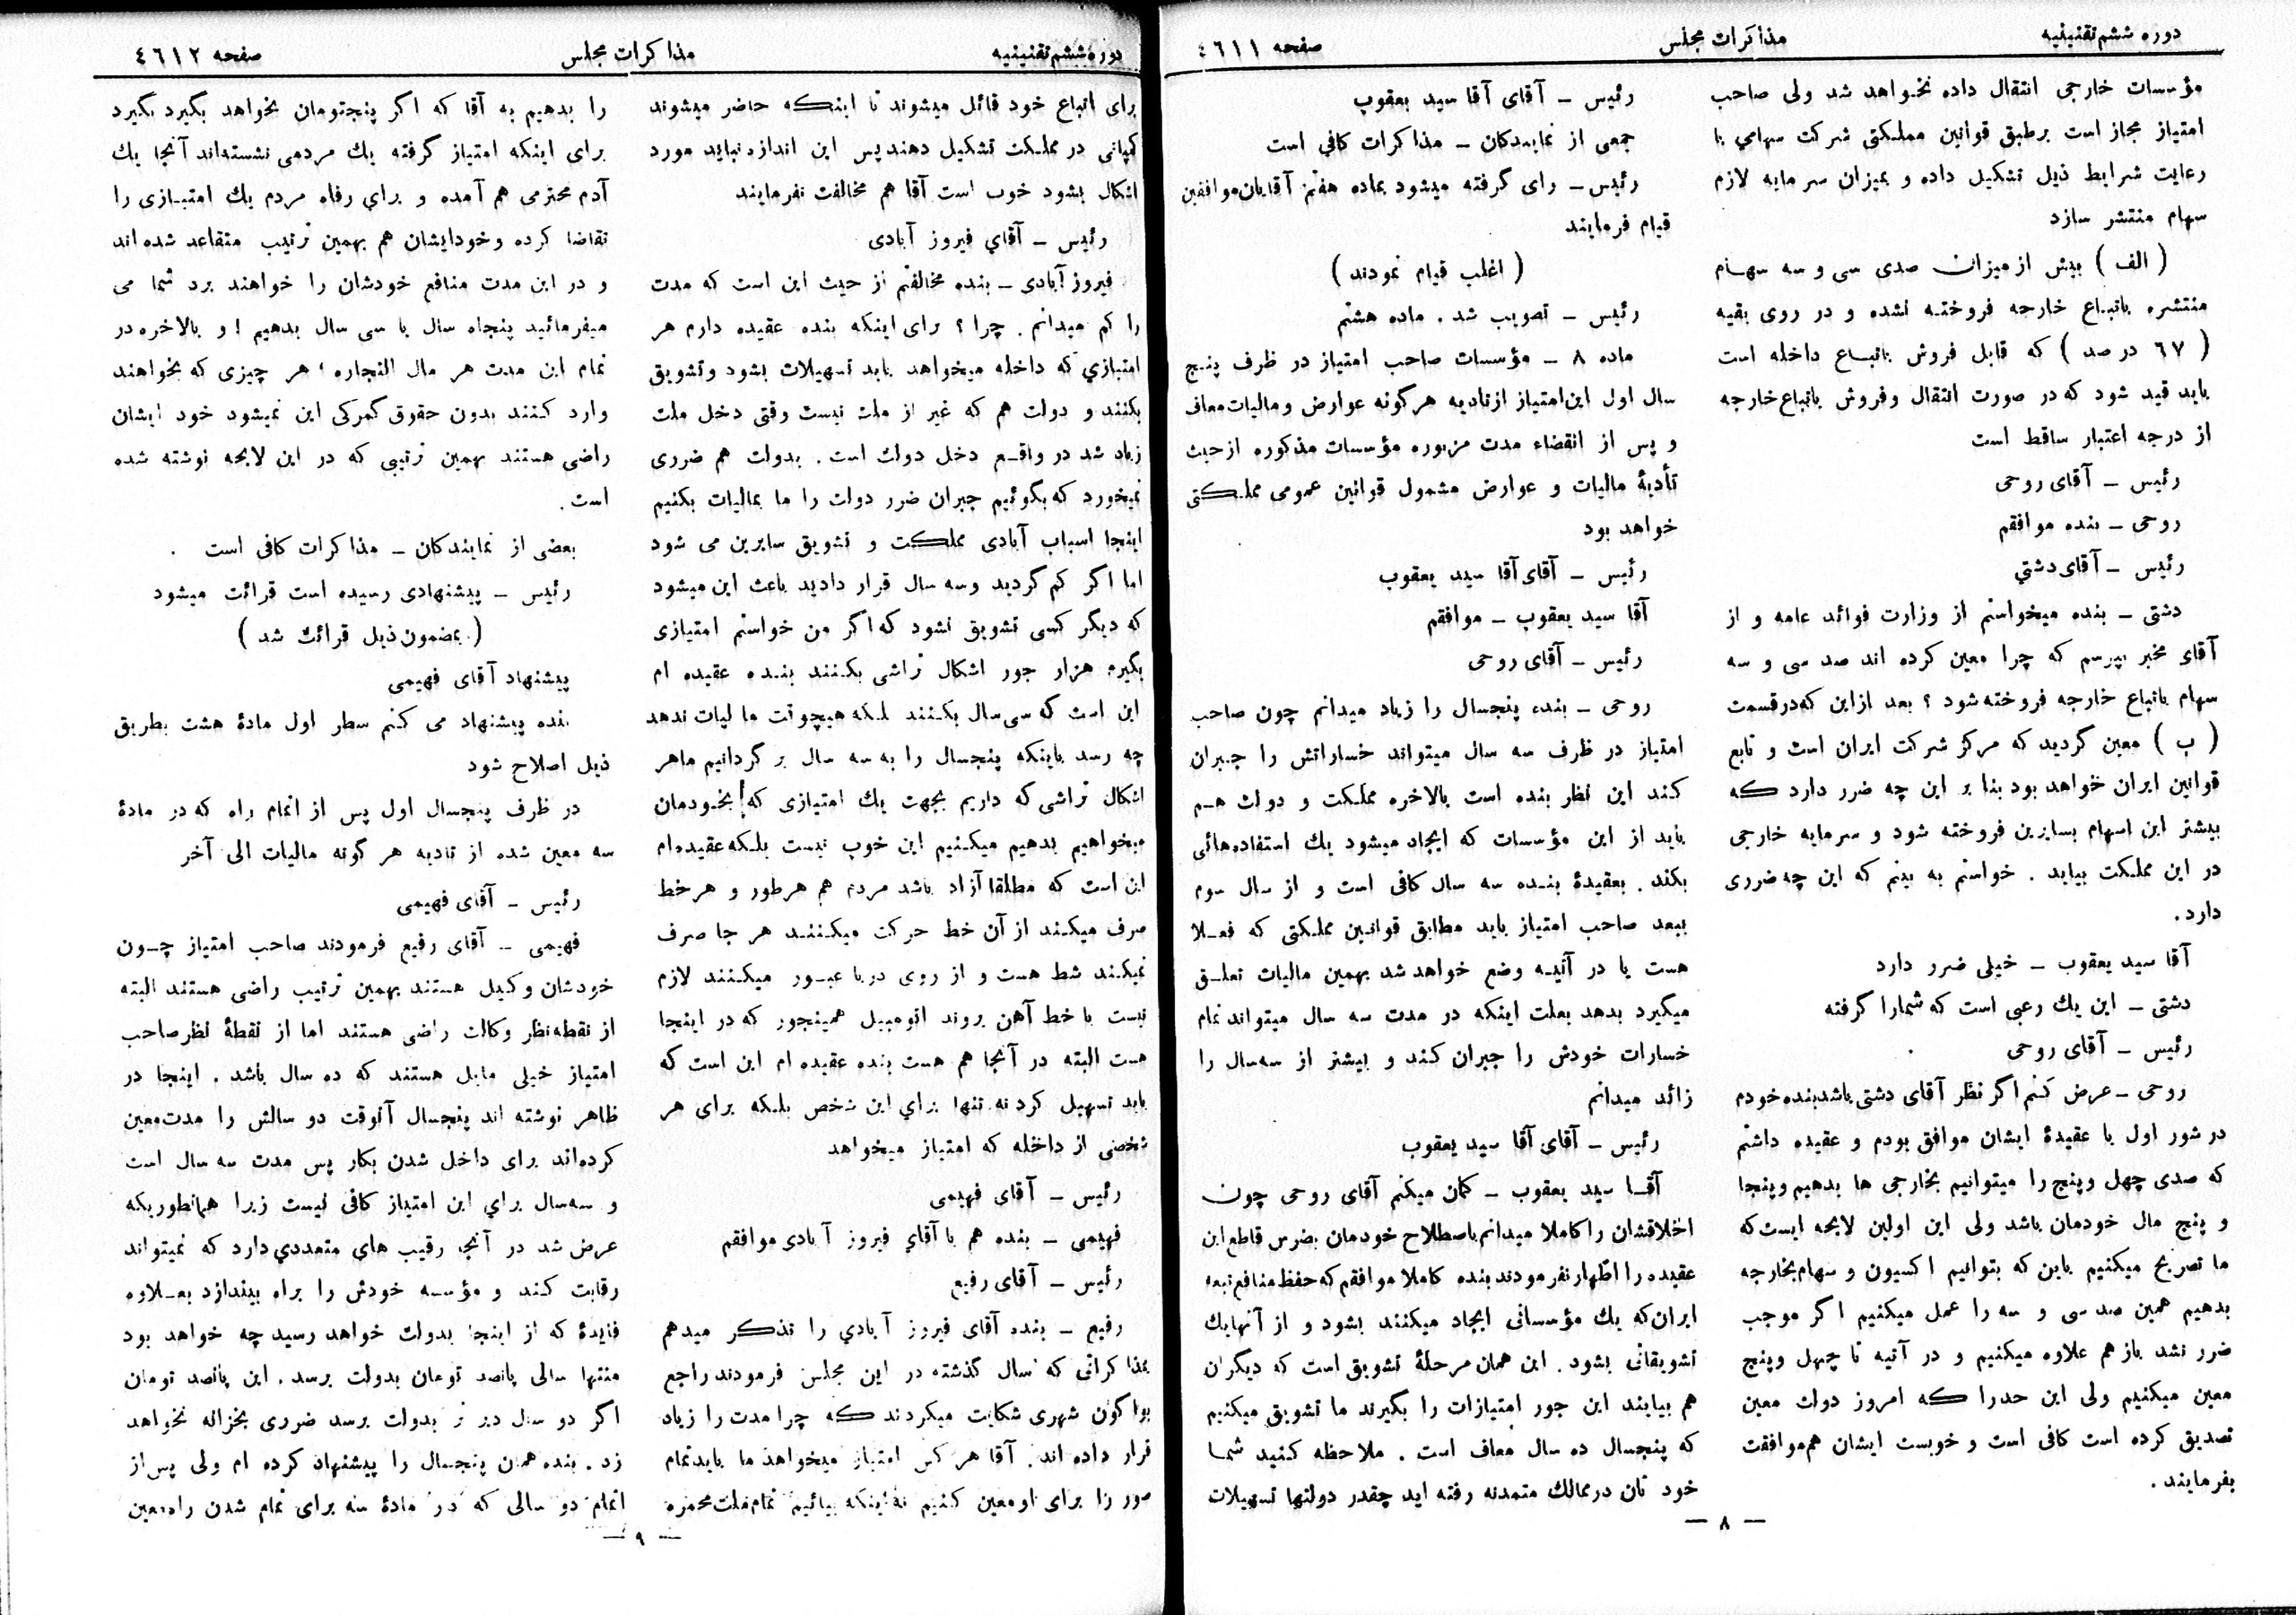 دوره ششم تقنینیه
مذاکرات مجلس
صفحه ٤٦١١
مؤسسات خارجی انتقال داده نخواهد شد ولی صاحب
امتیاز مجاز است برطبق قوانین مملکتی شرکت سهامی با
رعایت شرایط ذیل تشکیل داده و بمیزان سرمایه لازم
سهام منتشر سازد
( الف ) بیش از میزان صدی سی و سه سهام
منتشره باتباع خارجه فروخته نشده و در روی بقیه
( ٦٧ درصد ) که قابل فروش باتباع داخله است
باید قید شود که در صورت انتقال وفروش باتباع خارجه
از درجه اعتبار ساقط است
رئیس – آقای روحی
روحی – بنده موافقم
رئیس – آقای دشتي
دشتی – بنده میخواستم از وزارت فوائد عامه و از
آقای مخبر بپرسم که چرا معین کرده اند صد سی و سه
سهام باتباع خارجه فروخته شود ؟ بعد ازاین که درقسمت
( ب ) معین گردید که مرکز شرکت ایران است و تابع
قوانین ایران خواهد بود بنا بر این چه ضرر دارد که
بیشتر این اسهام بسایرین فروخته شود و سرمایه خارجی
در این مملکت بیاید . خواستم به بینم که این چه ضرری
دارد .
آقا سید یعقوب – خیلی ضرر دارد
دشتی – این یك رعبی است که شمارا گرفته
رئیس – آقای روحی
روحی – عرض کنم اگر نظر آقای دشتی باشد بنده خودم
در شور اول با عقیدهٔ ایشان موافق بودم و عقیده داشتم
که صدی چهل وپنج را میتوانیم بخارجی ها بدهیم وپنجا
و پنج مال خودمان باشد ولی این اولین لایحه ایست که
ما تصریح میکنیم باین که بتوانیم اکسیون و سهام بخارجه
بدهیم همین صد سی و سه را عمل میکنیم اگر موجب
ضرر نشد باز هم علاوه میکنیم و در آتیه تا چهل وپنج
معین میکنیم ولی این حدرا که امروز دولت معین
تصدیق کرده است کافی است و خوبست ایشان هم موافقت
بفرمایند .
رئیس – آقای آقا سید یعقوب
جمعی از نمایندکان – مذاکرات کافي است
رئیس – رای گرفته میشود بماده هفتم آقایان موافقین
قیام فرمایند
( اغلب قیام نمودند )
رئیس – تصویب شد . ماده هشتم
ماده ٨ – مؤسسات صاحب امتیاز در ظرف پنج
سال اول این امتیاز از تادیه هرگونه عوارض و مالیات معاف
و پس از انقضاء مدت مزبوره مؤسسات مذکوره از حیث
تأدیهٔ مالیات و عوارض مشمول قوانین عمومی مملکتی
خواهد بود
رئیس – آقای آقا سید یعقوب
آقا سید یعقوب – موافقم
رئیس – آقای روحی
روحی – بنده پنجسال را زیاد میدانم چون صاحب
امتیاز در ظرف سه سال میتواند خساراتش را جبران
کند این نظر بنده است بالاخره مملکت و دولت هم
باید از این مؤسسات که ایجاد میشود یك استفاده هائی
بکند . بعقیدهٔ بنده سه سال کافی است و از سال سوم
ببعد صاحب امتیاز باید مطابق قوانین مملکتی که فعلا
هست یا در آتیه وضع خواهد شد بهمین مالیات تعلق
میگیرد بدهد بعلت اینکه در مدت سه سال میتواند تمام
خسارات خودش را جبران کند و بیشتر از سه سال را
زائد میدانم
رئیس – آقای آقا سید یعقوب
آقا سید یعقوب – گمان میکنم آقای روحی چون
اخلاقشان را کاملا میدانم باصطلاح خودمان بضرس قاطع این
عقیده را اظهار نفرمودند بنده کاملا موافقم که حفظ منافع تبعه
ایران که یك مؤسساتی ایجاد میکنند بشود و از آنها یك
تشویقاتی بشود . این همان مرحلهٔ تشویق است که دیگران
هم بیایند این جور امتیازات را بگیرند ما تشویق میکنیم
که پنجسال ده سال معاف است . ملاحظه کنید شما
خود تان در ممالك متمدنه رفته اید چقدر دولتها تسهیلات
— ٨ —
دوره ششم تقنینیه
مذاکرات مجلس
صفحه ٤٦١٢
برای اتباع خود قائل میشوند تا اینکه حاضر میشوند
کمپانی در مملکت تشکیل دهند پس این اندازه نباید مورد
اشکال بشود خوب است آقا هم مخالفت نفرمایند
رئیس – آقاي فیروز آبادی
فیروز آبادی – بنده مخالفتم از حیث این است که مدت
را کم میدانم . چرا ؟ برای اینکه بنده عقیده دارم هر
امتیازي که داخله میخواهد باید تسهیلات بشود وتشویق
بکنند و دولت هم که غیر از ملت نیست وقتی دخل ملت
زیاد شد در واقع دخل دولت است . بدولت هم ضرری
نمیخورد که بگوئیم جبران ضرر دولت را ما بمالیات بکنیم
اینجا اسباب آبادی مملکت و تشویق سایرین می شود
اما اگر کم گردید وسه سال قرار دادید باعث این میشود
که دیگر کسی تشویق نشود که اگر من خواستم امتیازی
بگیرم هزار جور اشکال تراشی بکنند بنده عقیده ام
این است که سی سال بکنند بلکه هیچوقت مالیات ندهد
چه رسد باینکه پنجسال را به سه سال بر گردانیم ماهر
اشکال تراشی که داریم بجهت یك امتیازی که بخودمان
میخواهیم بدهیم میکنیم این خوب نیست بلکه عقیده ام
این است که مطلقا آزاد باشد مردم هم هرطور و هرخط
صرف میکند از آن خط حرکت میکنند هر جا صرف
نمیکند شط هست و از روی دریا عبور میکنند لازم
نیست با خط آهن بروند اتومبیل همینجور که در اینجا
هست البته در آنجا هم هست بنده عقیده ام این است که
باید تسهیل کرد نه تنها براي این شخص بلکه برای هر
شخصی از داخله که امتیاز میخواهد
رئیس – آقای فهیمی
فهیمی – بنده هم با آقاي فیروز آبادی موافقم
رئیس – آقای رفیع
رفیع – بنده آقای فیروز آبادي را تذکر میدهم
بمذاکراتی که سال گذشته در این مجلس فرمودند راجع
بواگون شهری شکایت میکردند که چرا مدت را زیاد
قرار داده اند . آقا هر کس امتیاز میخواهد ما باید تمام
صور را برای او معین کنیم نه اینکه بیائیم تمام ملت محمره
را بدهیم به آقا که اگر پنجتومان بخواهد بگیرد بگیرد
برای اینکه امتیاز گرفته یك مردمی نشسته اند آنجا یك
آدم محترمی هم آمده و براي رفاه مردم یك امتیازی را
تقاضا کرده وخودایشان هم بهمین ترتیب متقاعد شده اند
و در این مدت منافع خودشان را خواهند برد شما می
میفرمائید پنجاه سال یا سی سال بدهیم ! و بالاخره در
تمام این مدت هر مال التجاره ، هر چیزی که بخواهند
وارد کنند بدون حقوق گمرکی این نمیشود خود ایشان
راضی هستند بهمین ترتیبی که در این لایحه نوشته شده
است .
بعضی از نمایندکان – مذاکرات کافی است .
رئیس – پیشنهادی رسیده است قرائت میشود
( بمضمون ذیل قرائت شد )
پیشنهاد آقای فهیمی
بنده پیشنهاد می کنم سطر اول مادهٔ هشت بطریق
ذیل اصلاح شود
در ظرف پنجسال اول پس از اتمام راه که در مادهٔ
سه معین شده از تادیه هر گونه مالیات الی آخر
رئیس – آقای فهیمی
فهیمی – آقای رفیع فرمودند صاحب امتیاز چون
خودشان وکیل هستند بهمین ترتیب راضی هستند البته
از نقطه نظر وکالت راضی هستند اما از نقطهٔ نظر صاحب
امتیاز خیلی مایل هستند که ده سال باشد . اینجا در
ظاهر نوشته اند پنجسال آنوقت دو سالش را مدت معین
کرده اند برای داخل شدن بکار پس مدت سه سال است
و سه سال براي این امتیاز کافی نیست زیرا همانطوریکه
عرض شد در آنجا رقیب هاي متعددي دارد که نمیتواند
رقابت کند و مؤسسه خودش را براه بیندازد بعلاوه
فایدهٔ که از اینجا بدولت خواهد رسید چه خواهد بود
منتها سالی پانصد تومان بدولت برسد . این پانصد تومان
اگر دو سال دیر تر بدولت برسد ضرری بخزانه نخواهد
زد . بنده همان پنجسال را پیشنهاد کرده ام ولی پس از
اتمام دو سالی که در مادهٔ سه برای تمام شدن راه معین
— ٩ —